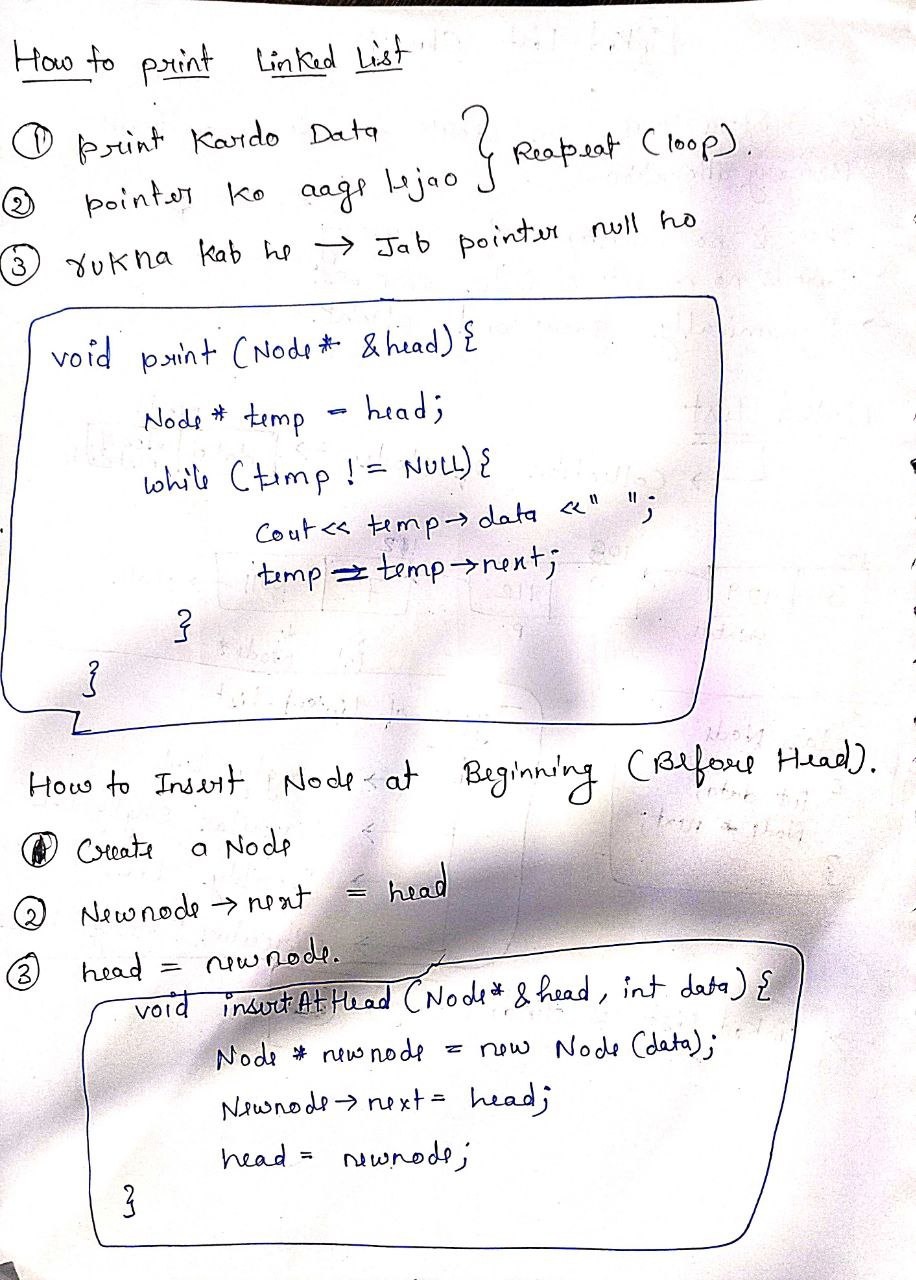 How to print Linked List
① print Kardo Data
② pointer ko aage lejao } Reapeat (loop).
③ rukna kab he → Jab pointer null ho
void print (Node* &head) {
Node * temp = head;
while (temp != NULL) {
Cout << temp → data << " ";
temp = temp → next;
}
}
How to Insert Node at Beginning (Before Head).
① Create a Node
② Newnode → next = head
③ head = newnode.
void insertAtHead (Node* &head, int data) {
Node * newnode = new Node (data);
Newnode → next = head;
head = newnode;
}